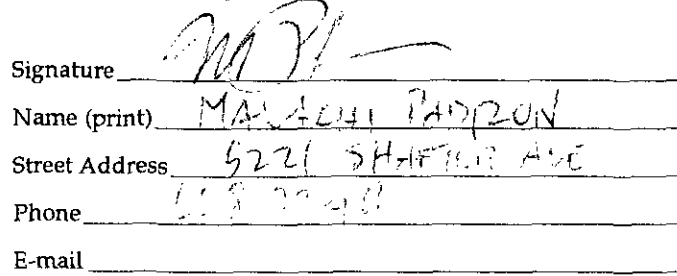 Signature
Name (print) MALACHI PADRON
Street Address 5221 SHAFTER AVE
Phone
E-mail